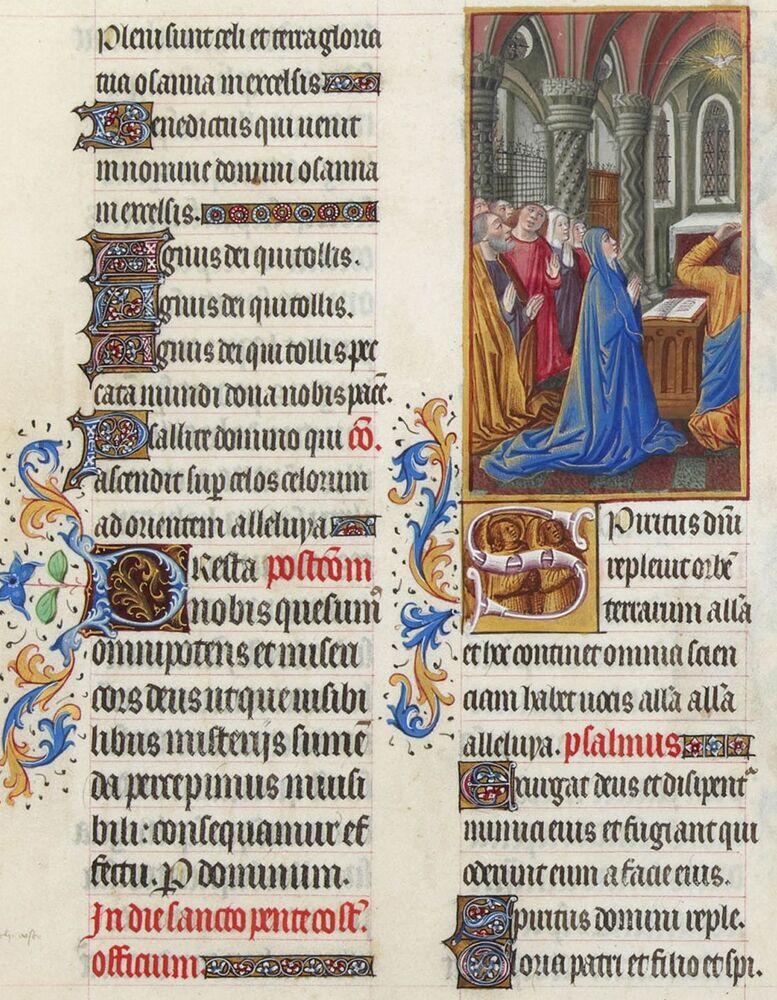 Pleni sunt celi et terra gloria
tua osanna in excelsis
Benedictus qui uenit
in nomine domini osanna
in excelsis.
Agnus dei qui tollis.
Agnus dei qui tollis.
Agnus dei qui tollis pec
cata mundi dona nobis pacē.
Psallite domino qui cō.
ascendit sup celos celorum
ad orientem alleluya
Presta postcōm
nobis quesum̄
omnipotens et miseri
cors deus ut que uisibi
libus misterijs sumē
da percepimus inuisi
bili: consequamur ef
fectu. P dominum.
In die sancto pentecost.
officium
Spiritus dn̄i
repleuit orbē
terrarum all̄a
et hoc continet omnia scien
ciam habet uocis all̄a all̄a
alleluya. psalmus
Exurgat deus et disipent
inimici eius et fugiant qui
oderunt eum a facie eius.
Spiritus domini reple.
Gloria patri et filio et spi.